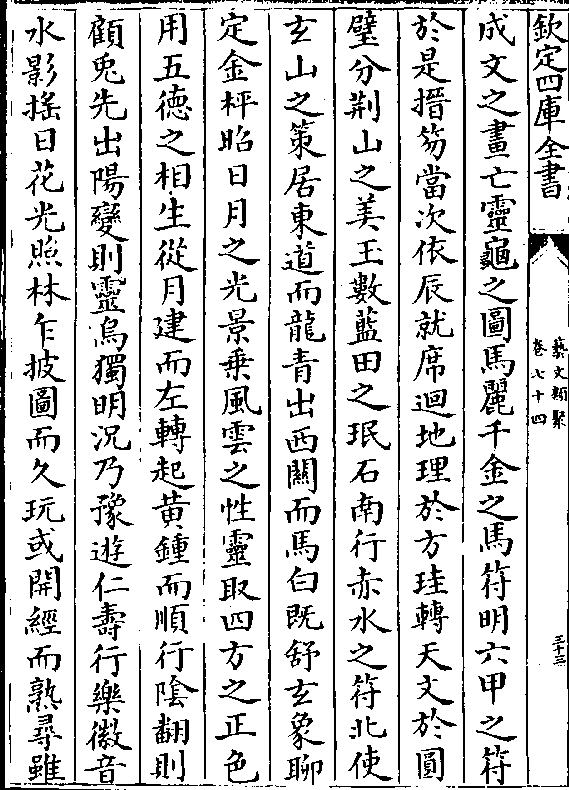 欽定四庫全書
藝文類聚
卷七十四
三十三
成文之畫亡靈龜之圖馬麗千金之馬符明六甲之符
於是搢笏當次依辰就席迴地理於方珪轉天文於圓
璧分荆山之美玉數藍田之珉石南行赤水之符北使
玄山之策居東道而龍青出西關而馬白既舒玄象聊
定金枰昭日月之光景乗風雲之性靈取四方之正色
用五德之相生從月建而左轉起黄鍾而順行陰翻則
顧兎先出陽變則靈烏獨明況乃豫遊仁壽行樂徽音
水影揺日花光照林乍披圖而久玩或開經而熟尋雖